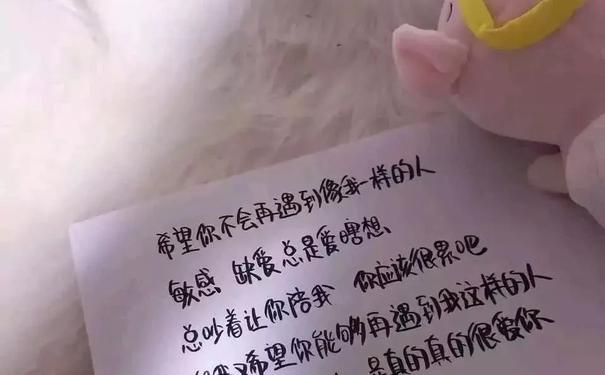 希望你不会再遇到像我一样的人
敏感 缺爱总是爱瞎想、
总吵着让你陪我 你应该很累吧
又希望你能够再遇到我这样的人
是真的真的很爱你